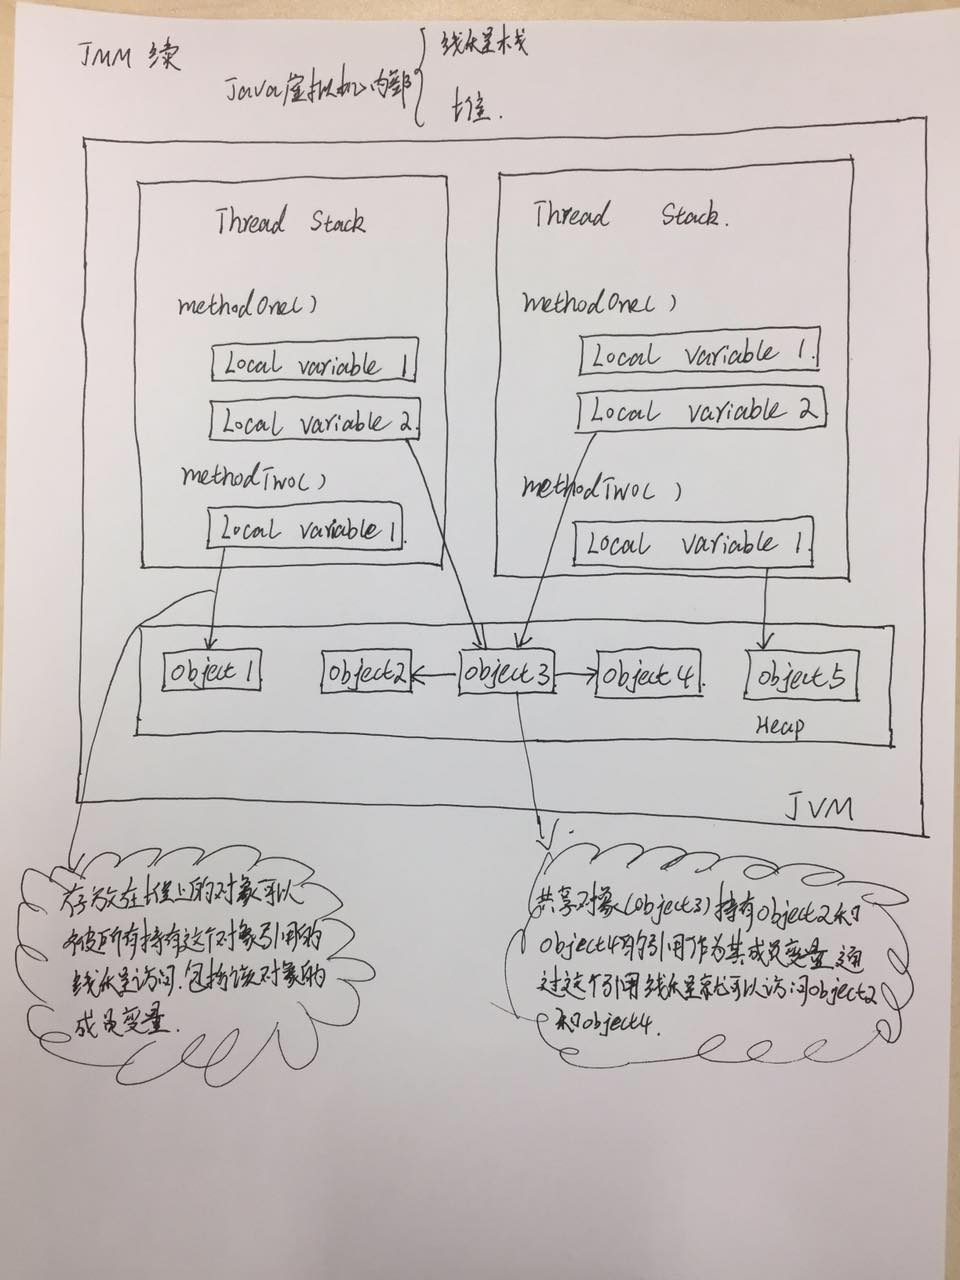 JMM 续
Java虚拟机内部
线程栈
堆.
Thread Stack
methodOne()
Local variable 1
Local variable 2.
methodTwo()
Local variable 1.
Thread Stack.
methodOne()
Local variable 1.
Local variable 2
methodTwo()
Local variable 1.
object1
object2
object3
object4.
object5
Heap
JVM
存放在堆上的对象可以
被所有持有这个对象引用的
线程访问.包括该对象的
成员变量.
共享对象(object3)持有object2和
object4的引用作为其成员变量,通
过这个引用线程就可以访问object2
和object4.